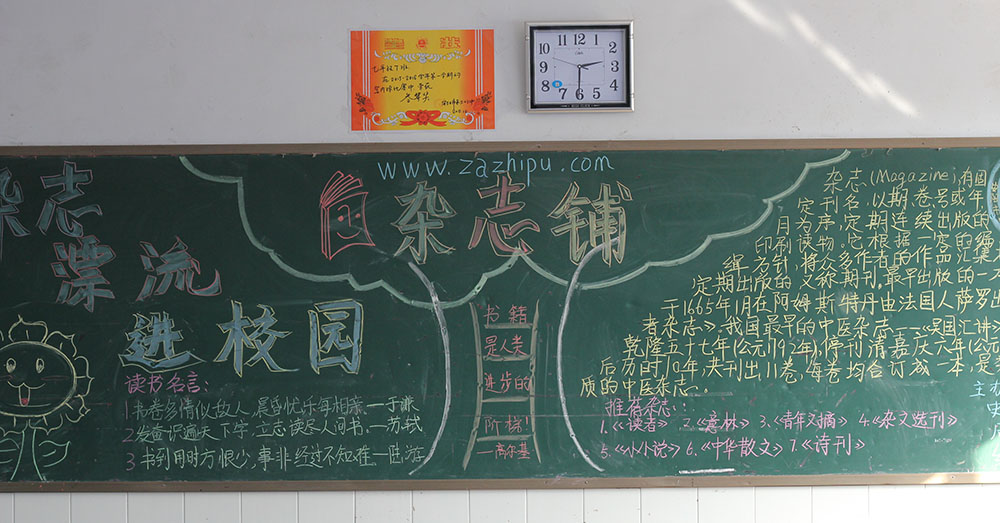 12 1 2 3 4 5 6 7 8 9 10 11
七年级7班
www.zazhipu.com
杂志
漂流
进校园
杂志铺
读书名言:
1.书卷多情似故人,晨昏忧乐每相亲.—于谦
2.发奋识遍天下字,立志读尽人间书.—苏轼
3.书到用时方恨少,事非经过不知难.—陆游
书籍
是人类
进步的
阶梯!
—高尔基
杂志(Magazine),有固
定刊名,以期、卷、号或年、
月为序,定期连续出版的
印刷读物。它根据一定的编
辑方针,将众多作者的作品汇集
定期出版的,又称期刊.最早出版的一
于1665年1月在阿姆斯特丹由法国人萨罗
者杂志》.我国最早的中医杂志——《吴医汇讲》
乾隆五十七年(公元1792年),停刊清嘉庆六年(公元
后历时10年,共刊出11卷,每卷均合订成一本,是
质的中医杂志.
推荐杂志:
1.《读者》 2.《意林》 3.《青年文摘》 4.《杂文选刊》
5.《小小说》 6.《中华散文》 7.《诗刊》